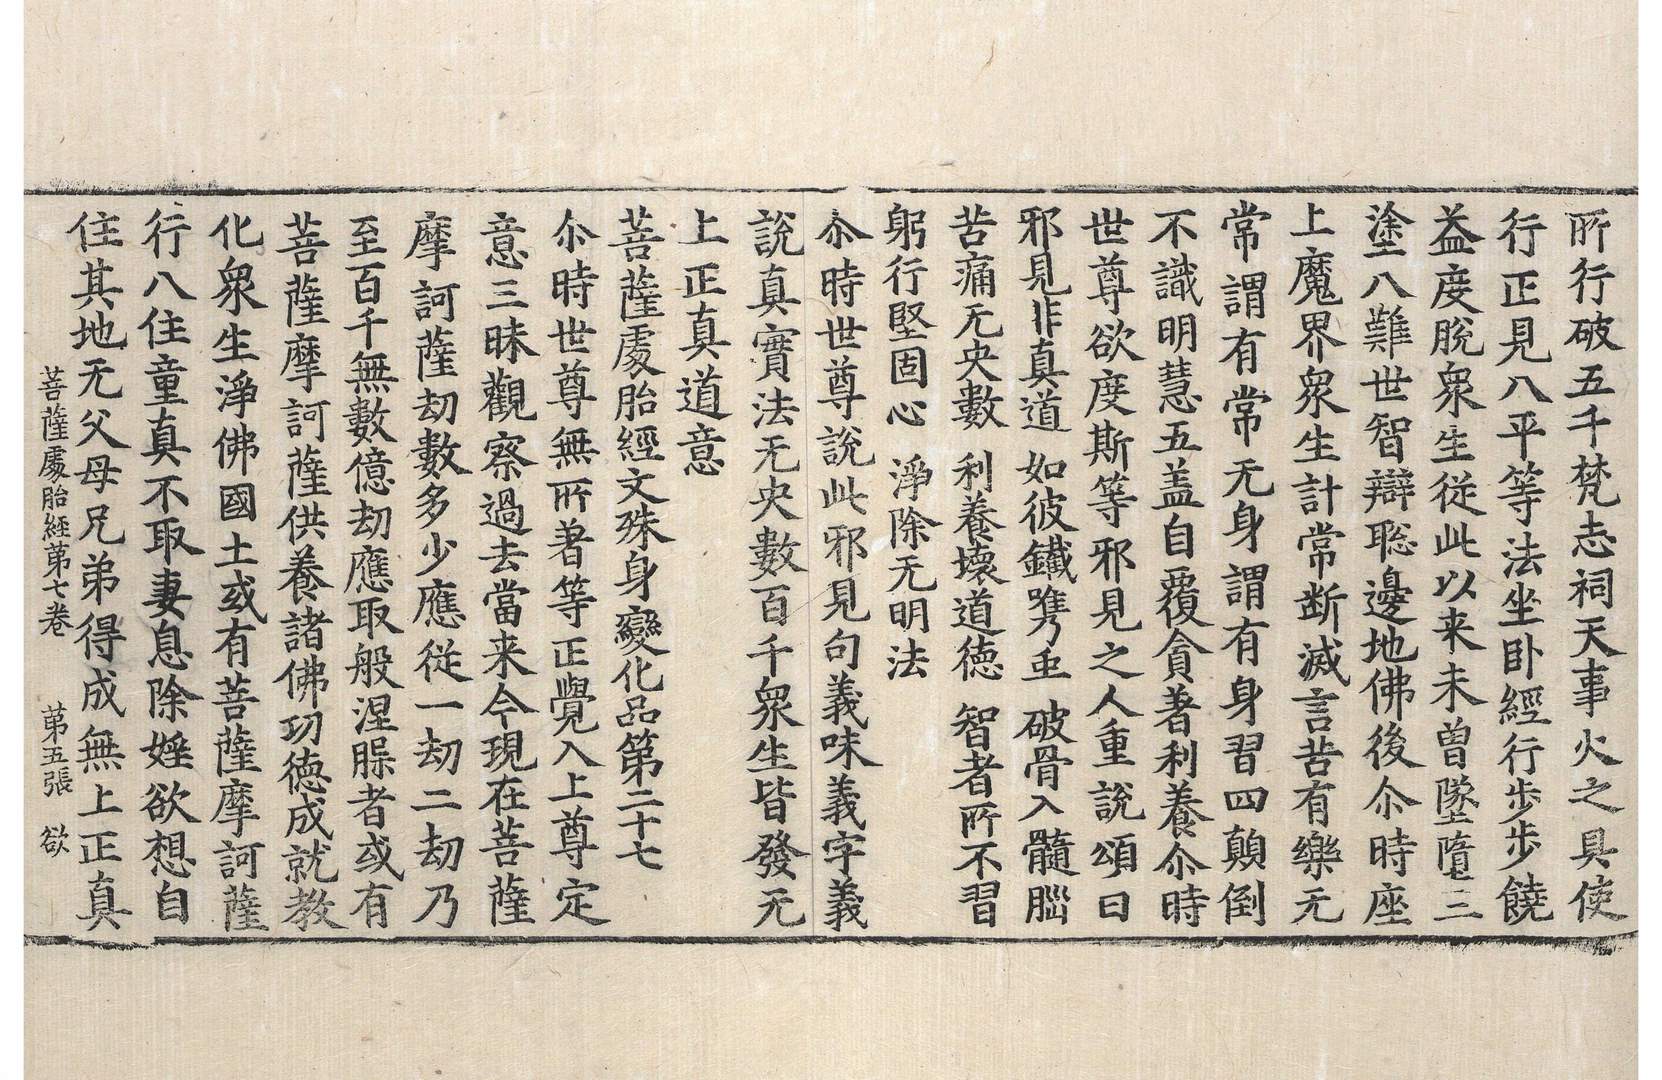 所行破五千梵志祠天事火之具使
行正見八平等法坐卧經行步步饒
益度脫衆生從此以来未曾墜墮三
塗八難世智辯聡邊地佛後尒時座
上魔界衆生計常断滅言苦有樂无
常謂有常无身謂有身習四顛倒
不識明慧五盖自覆貪著利養尒時
世尊欲度斯等邪見之人重說頌曰
邪見非真道 如彼鐵㬺䖝 破骨入髓腦
苦痛无央數 利養壞道德 智者所不習
躬行堅固心 淨除无明法
尒時世尊說此邪見句義味義字義
說真實法无央數百千衆生皆發无
上正真道意
菩薩處胎經文殊身變化品第二十七
尒時世尊無所著等正覺入上尊定
意三昧觀察過去當来今現在菩薩
摩訶薩劫數多少應從一劫二劫乃
至百千無數億劫應取般涅槃者或有
菩薩摩訶薩供養諸佛功德成就教
化衆生淨佛國土或有菩薩摩訶薩
行八住童真不取妻息除婬欲想自
住其地无父母兄弟得成無上正真
菩薩處胎經第七卷 第五張 欲